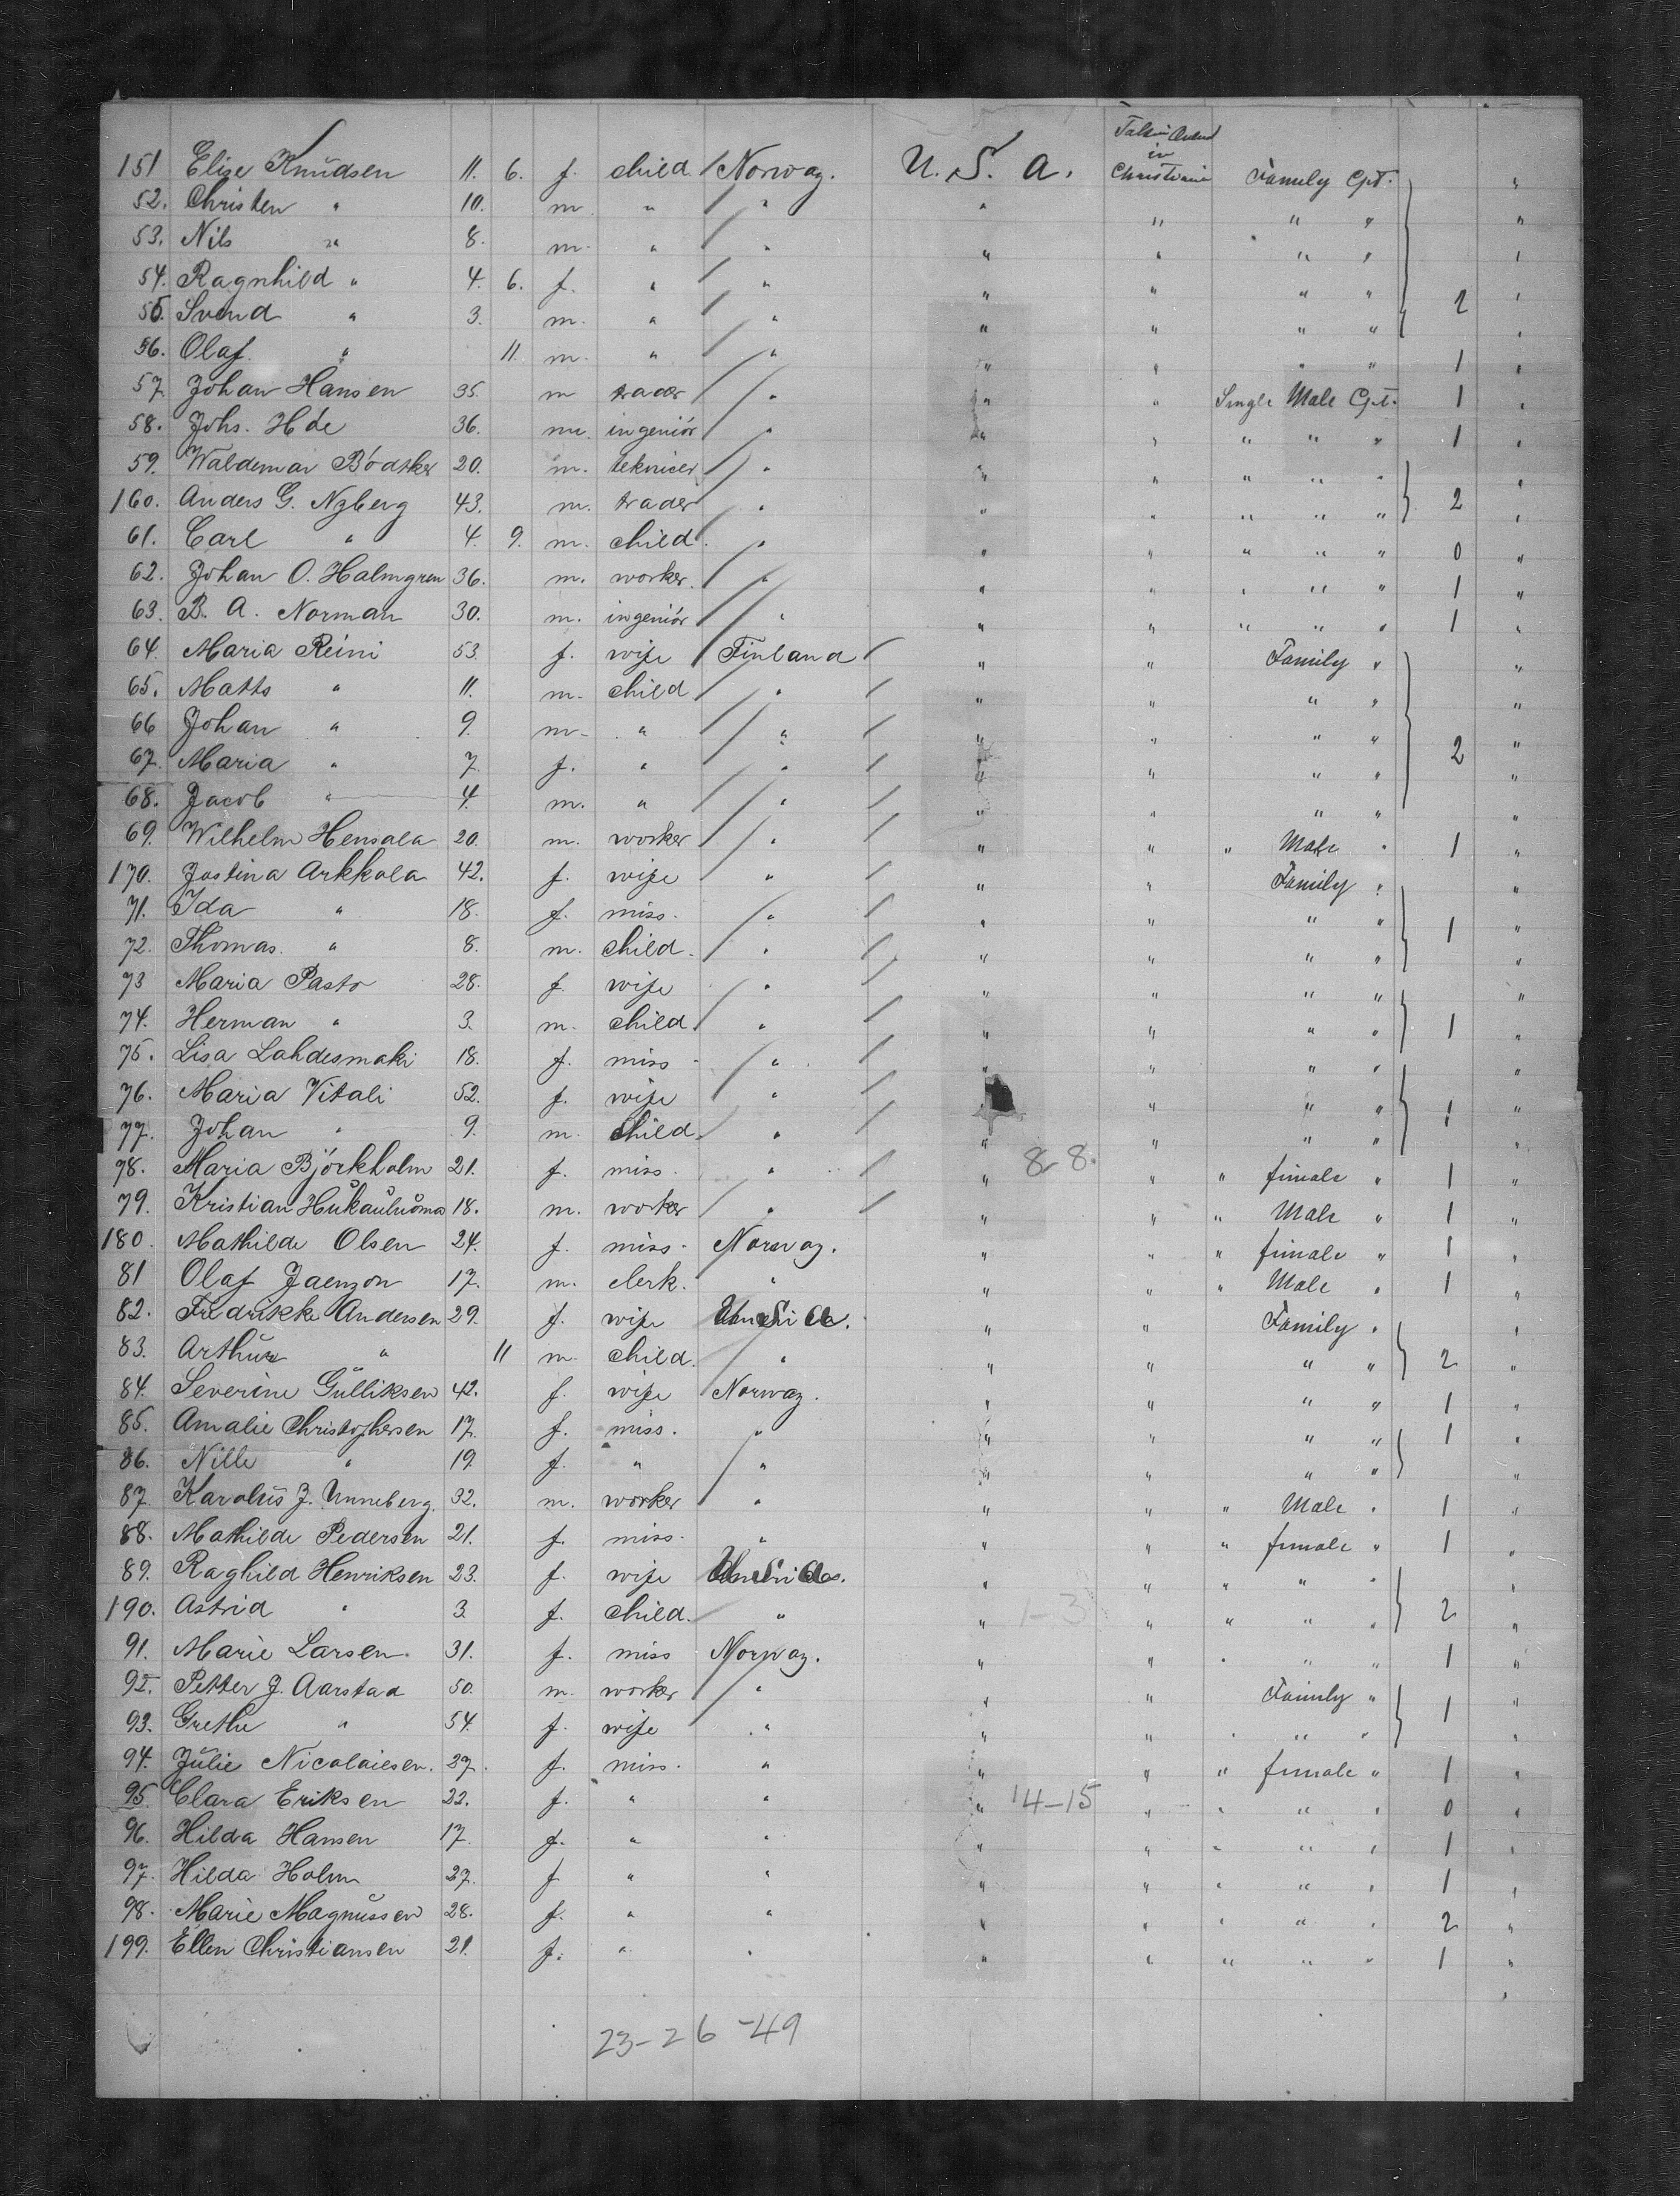 Taken Onboard
in
151 Elise Knudsen 11. 6. f. child. Norway. U. S. A. Christiania Family Cpt. "
52. Christen " 10. m " " " " " " "
53. Nils " 8. m. " " " " " " "
54. Ragnhild " 4. 6. f. " " " " " " 2 "
55. Svend " 3. m. " " " " " " "
56. Olaf " 11 m. " " " " " " 1 "
57. Johan Hansen 35. m trader " " " Single Male Cpt. 1 "
58. Johs. Hde 36. m. ingeniör " " " " " " 1 "
59. Waldemar Bödtker 20. m. teknicer " " " " " " "
160. Anders G. Nyberg 43. m. trader " " " " " " 2 "
61. Carl " 4. 9. m. child " " " " " " 0 "
62. Johan O. Halmgren 36. m. worker. " " " " " " 1 "
63. B. A. Norman 30. m. ingeniör " " " " " " 1 "
64. Maria Reini 53. f. wife Finland " " Family " "
65. Matts " 11. m. child " " " " " "
66 Johan " 9. m. " " " " " " "
67. Maria " 7. f. " " " " " " 2 "
68. Jacob " 4. m. " " " " " " "
69. Wilhelm Hensala 20. m. worker " " " " Male " 1 "
170. Jostina Arkkola 42. f. wife " " " Family " "
71. Ida " 18. f. miss. " " " " " 1 "
72. Thomas. " 8. m. child. " " " " " "
73 Maria Pasto 28. f. wife " " " " " "
74. Herman " 3. m. child. " " " " " 1 "
75. Lisa Lahdesmaki 18. f. miss " " " " " "
76. Maria Vitali 52. f. wife " " " " 1 "
77. Johan " 9. m. child. " " " " " "
78. Maria Björkholm 21. f. miss. " " 8 8. " " female " 1 "
79. Kristian Hukauluoma 18. m. worker " " " " Male " 1 "
180. Mathilde Olsen 24. f. miss. Norway. " " " female " 1 "
81 Olaf Jaenzon 17. m. clerk. " " " " Male " 1 "
82. Fredrikke Andersen 29. f. wife U.S.A. " " Family " "
83. Arthur " 11 m. child. " " " " " 2 "
84. Severine Gulliksen 42. f. wife Norway. " " " " 1 "
85. Amalie Christophersen 17. f. miss. " " " " " 1 "
86. Nille " 19. f. " " " " " " "
87. Karolus J. Unneberg. 32. m. worker " " " " Male " 1 "
88. Mathilde Pedersen 21. f. miss. " " " " female " 1 "
89. Raghild Henriksen 23. f. wife U.S.A. " " " " " "
190. Astrid " 3. f. child. " " 1-3 " " " " 2 "
91. Marie Larsen. 31. f. miss Norway. " " " " " 1 "
92. Petter J. Aarstad 50. m. worker " " " Family " 1 "
93. Grethe " 54. f. wife " " " " " " "
94. Julie Nicolaiesen. 27. f. miss. " " " " female " 1 "
95. Clara Eriksen 22. f. " " " 14-15 " " " " 0 "
96. Hilda Hansen 17. f. " " " " " " " 1 "
97. Hilda Holm 27. f " " " " " " " 1 "
98. Marie Magnussen 28. f. " " " " " " " 2 "
199. Ellen Christiansen 21. f. " " " " " " " 1 "
23-26-49